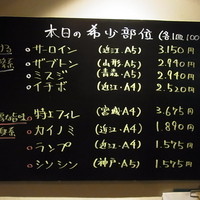 本日の希少部位 (各1皿100
サーロイン (近江・A5) 3.150円
ザブトン (山形・A5) 2.940円
ミスジ (青森・A5) 2.940円
イチボ (近江・A4) 2.520円
特上フィレ (宮城・A4) 3.675円
カイノミ (近江・A4) 1.890円
ランプ (近江・A4) 1.575円
シンシン (神戸・A5) 1.575円